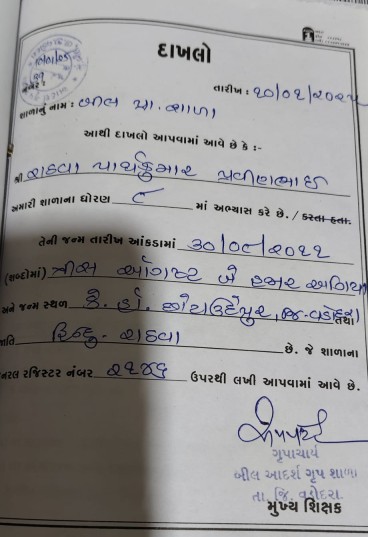 દાખલો
તારીખ : ૨૦/૦૨/૨૦૨૫
શાળાનું નામ : બીલ પ્રા. શાળા
આથી દાખલો આપવામાં આવે છે કે :-
શ્રી રાઠવા પાર્થકુમાર પ્રવીણભાઈ
અમારી શાળાના ધોરણ ૮ માં અભ્યાસ કરે છે. / કરતા હતા.
તેની જન્મ તારીખ આંકડામાં ૩૦/૦૮/૨૦૧૧
(શબ્દોમાં) ત્રીસ ઓગષ્ટ બે હજાર અગિયાર
અને જન્મ સ્થળ કે. હો. છોટાઉદેપુર, જિ-વડોદરા તથા
જાતિ હિન્દુ - રાઠવા છે. જે શાળાના
જનરલ રજિસ્ટર નંબર ૨૧૪૬ ઉપરથી લખી આપવામાં આવે છે.
ગૃપાચાર્ય
બીલ આદર્શ ગૃપ શાળા
તા. જિ. વડોદરા.
મુખ્ય શિક્ષક